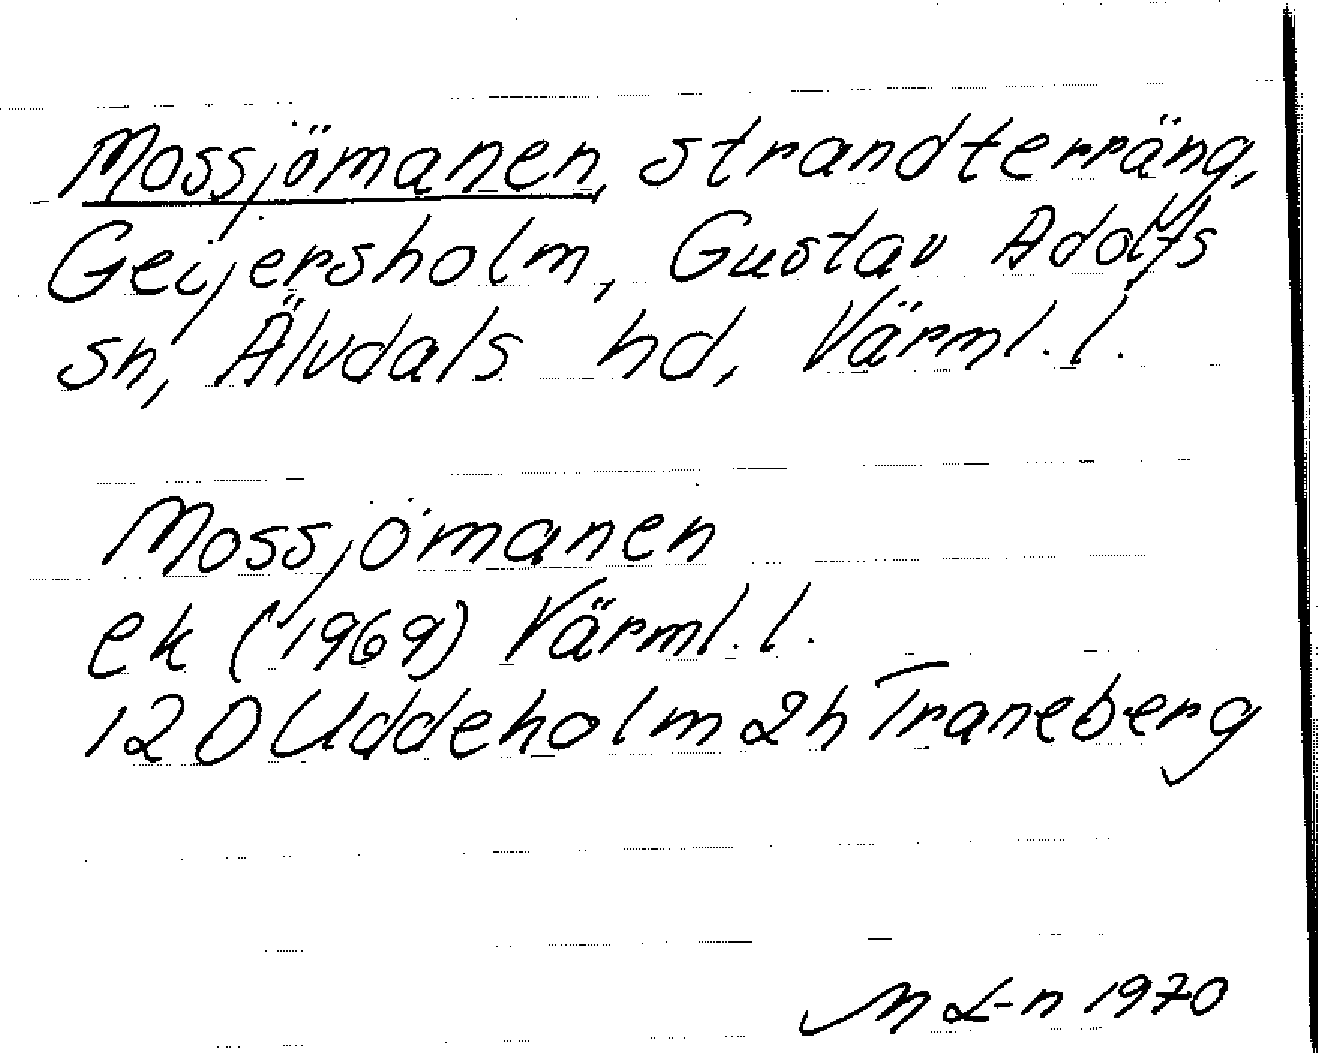 Mossjömanen, strandterräng,
Geijersholm, Gustav Adolfs
sn, Älvdals hd, Värml. l.
Mossjömanen
ek (1969) Värml. l.
12 D Uddeholm 2h Traneberg
M L-n 1970